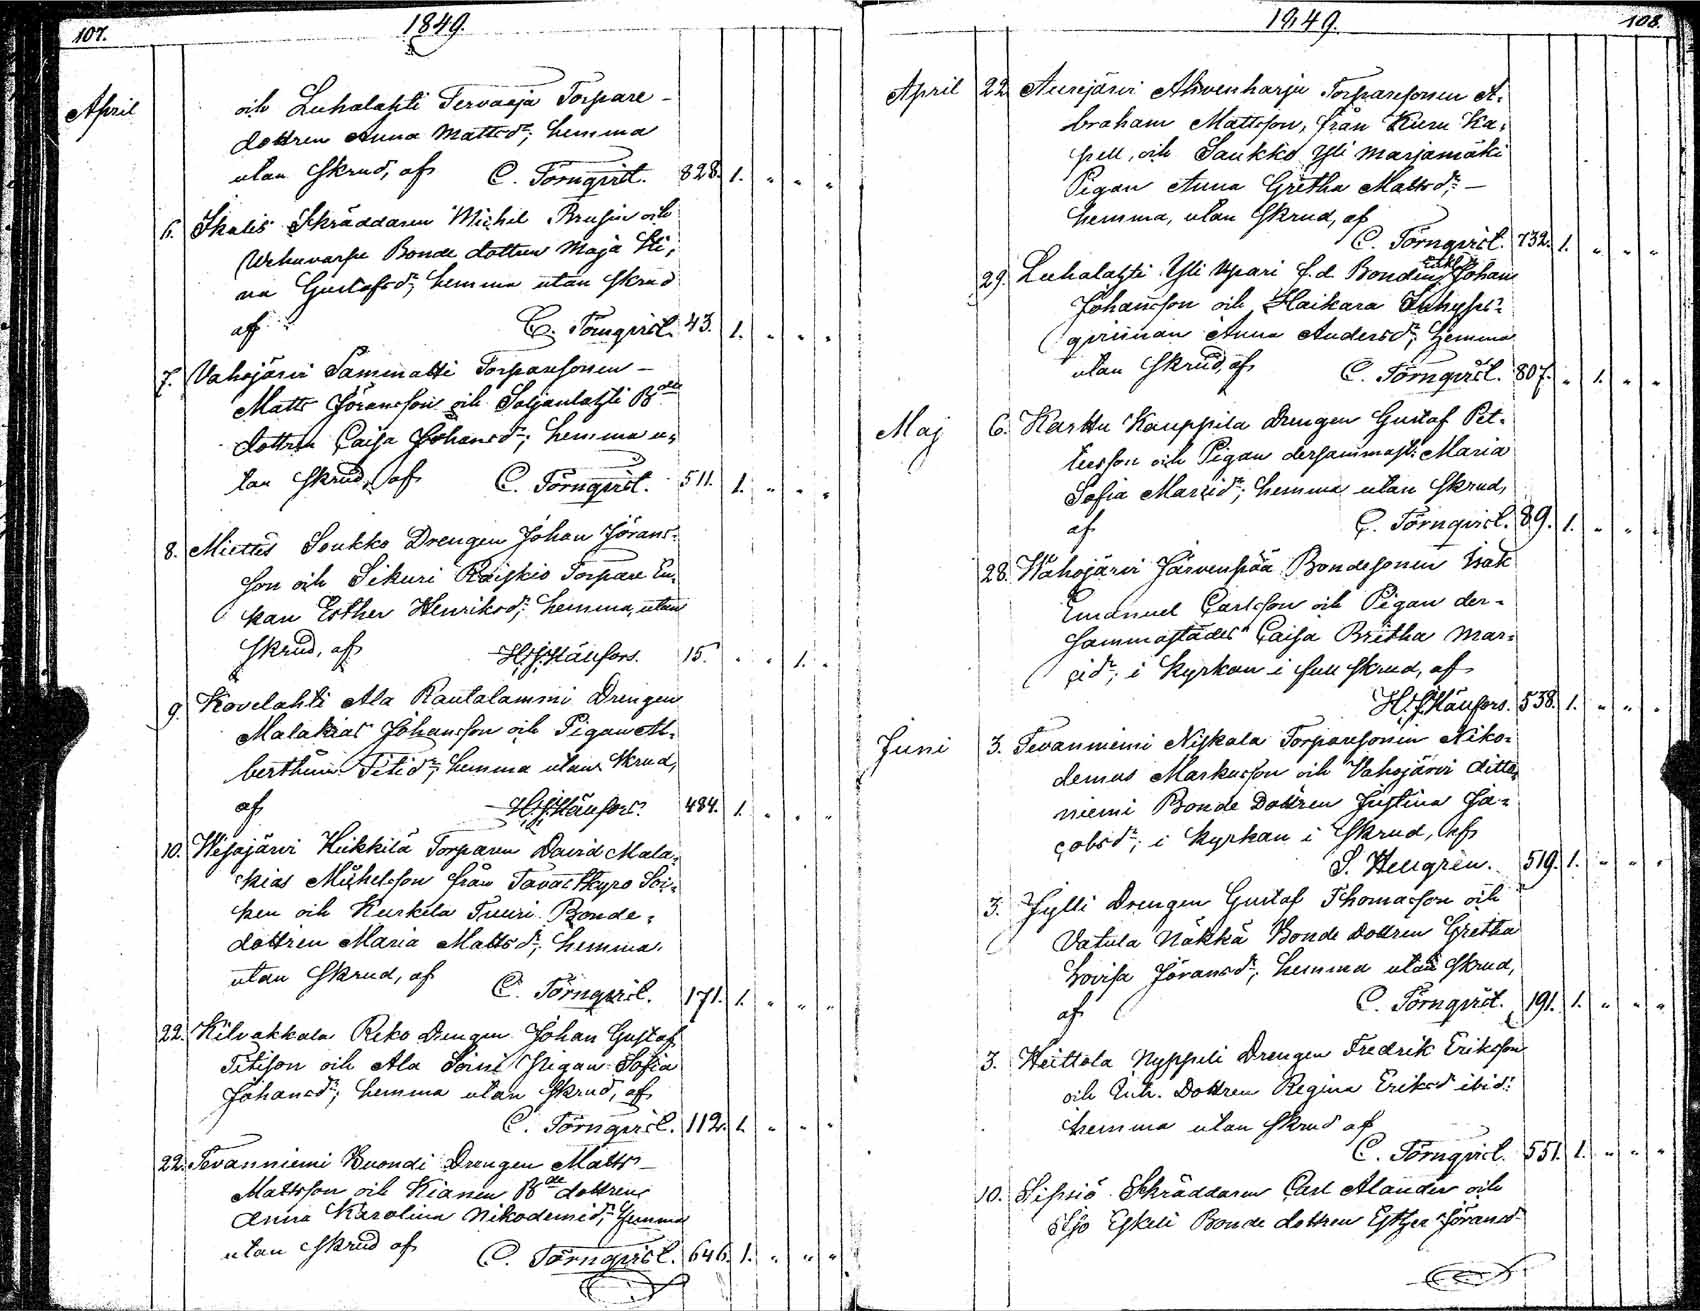 107. 1849.
April
och Luhalahti Tervaoja Torpare-
dottren Anna Mattsd:r, hemma
utan skrud, af C. Törnqvist. 828. 1. " " "
6. Ikalis Skräddaren Michel Brusin och
Bonde dottren Maja Sti,
na Gustafsd:r, hemma utan skrud
af C. Törnqvist. 43. 1. " " "
7. Vahojärvi Sammatti Torparesonen -
Matts Jöransson och Poljanlahti B:de
dottren Caisa Johansd:r, hemma u,
tan skrud, af C. Törnqvist. 511. 1. " " "
8. Miettis Soukko Drengen Johan Jörans-
son och Sikuri Raiskio Torpare En,
kan Esther Henriksd:r, hemma, utan
skrud, af H. J. Häufors. 15. " " 1. "
9. Kovelahti Ala Rautalammi Drengen
Malakias Johansson och Pigan Al,
berthina Titid:r, hemma utan skrud,
af H. J. Häufors. 484. 1. " " "
10. Wesajärvi Heikkilä Torparen David Mala,
kias Michelsson från Tavastkyro Soc,
ken och Kurkela Tuuri Bonde,
dottren Maria Mattsd:r, hemma,
utan skrud, af C. Törnqvist. 171. 1. " " "
22. Kilvakkala Reko Drengen Johan Gustaf
Titison och Ala Soini Pigan Sofia
Johansd:r, hemma utan skrud, af
C. Törnqvist. 112. 1. " " "
22. Tevanniemi Kuondi Drengen Matts
Mattsson och Kianen B:de dottren
Anna Karolina Nikodemid:r, hemma
utan skrud af C. Törnqvist. 646. 1. " " "
1849. 108.
April 22. Aurejärvi Ahvenharju Torparesonen A,
braham Mattsson, från Kuru Ka,
pell, och Saukko Yli Marjamäki
Pigan Anna Gretha Mattsd:r -
hemma, utan skrud, af
C. Törnqvist. 732. 1. " " "
29. Luhalahti Yli Upari f.d. Bonden Enkl. Johan
Johansson och Haikara Inhyses-
qvinnan Anna Andersd:r, hemma
utan skrud, af C. Törnqvist. 807. " 1. " "
Maj 6. Karttu Kauppila Drengen Gustaf Pet-
tersson och Pigan dersammast: Maria
Sofia Marcid:r, hemma utan skrud,
af C. Törnqvist. 89. 1. " " "
28. Wahojärvi Järvenpää Bondesonen Isak
Emanuel Carlsson och Pigan der-
sammastädes Caisa Britha Mar-
cid:r, i kyrkan i full skrud, af
H. J. Häufors. 538. 1. " " "
Juni 3. Tevanniemi Niskala Torparesonen Niko-
demus Markusson och Vahojärvi Ditto,
niemi Bonde Dottren Justina Ja-
cobsd:r, i kyrkan i skrud, af
S. Hellgrén. 519. 1. " " "
3. Jylli Drengen Gustaf Thomasson och
Vatula Näkkä Bonde Dottren Gretha
Lovisa Jöransd:r, hemma utan skrud,
af C. Törnqvist. 191. 1. " " "
3. Heittola Nyppeli Drengen Fredrik Eriksson
och Inh. Dottren Regina Eriksd ibid:
hemma utan skrud af
C. Törnqvist. 551. 1. " " "
10. Sipsiö Skräddaren Carl Alander och
Eskeli Bonde dottren Esther Jöransd